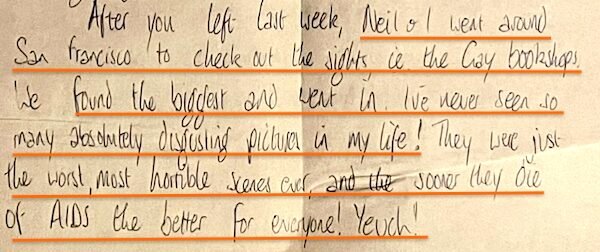 After you left last week, Neil & I went around
San Francisco to check out the sights ie. the Gay bookshops.
We found the biggest and went in. I've never seen so
many absolutely disgusting pictures in my life! They were just
the worst, most horrible scenes ever, and the sooner they die
of AIDS the better for everyone! Yeuch!